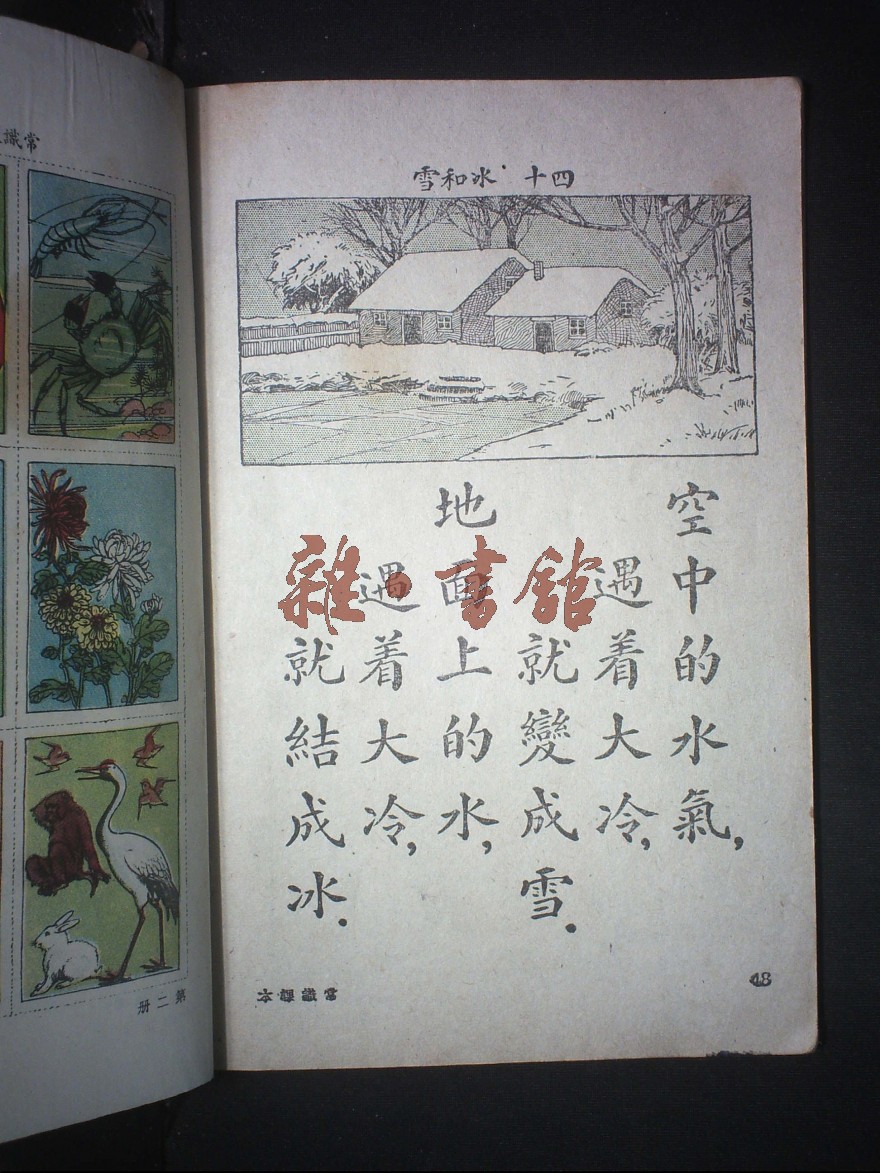 四十 冰和雪
空中的水氣,
遇着大冷,
就變成雪.
地面上的水,
遇着大冷,
就結成冰.
雜·書館
常識課本
48
常識
第二册